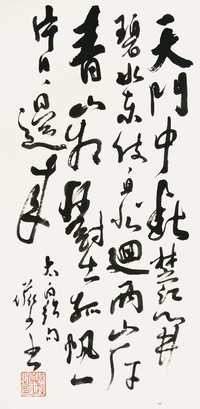 天門中斷楚江開
碧水東流至此迴兩岸
青山相對出孤帆一
片日邊來
太白詩句
書